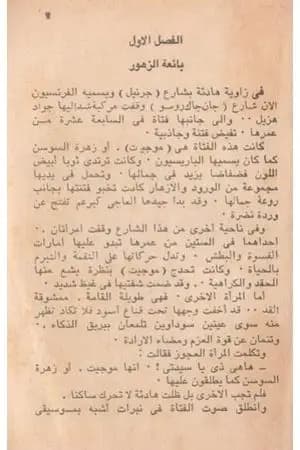 الفصل الاول
بائعة الزهور
في زاوية هادئة بشارع ( جرنيل ) ويسميه الفرنسيون
الان شارع ( جان جاك روسو ) وقفت مركبة شد اليها جواد
هزيل ٠٠ والى جانبها فتاة في السابعة عشرة من
عمرها ٠ تفيض فتنة وجاذبية ٠
كانت هذه الفتاة هى ( موجيت ) ٠ أو زهرة السوسن
كما كان يسميها الباريسيون ٠ وكانت ترتدى ثوبا أبيض
اللون فضفاضا يزيد في جمالها ٠ وتحمل في يديها
مجموعة من الورود والازهار كادت تخبو فتنتها بجانب
روعة جمالها ٠ وقد بدا جيدها العاجى كبرعم تفتح عن
وردة نضرة ٠
وفى ناحية أخرى من هذا الشارع وقفت امرأتان ٠
احداهما فى الستين من عمرها تبدو عليها امارات
القسوة والبطش ٠ وتدل حركاتها على النقمة والتبرم
بالحياة ٠ وكانت تحدج ( موجيت ) بنظرة يشع منها
الحقد والكراهية ٠ وقد ضمت شفتيها فى غيظ شديد ٠
أما المرأة الاخرى ٠ فهى طويلة القامة ٠ ممشوقة
القد ٠٠ قد أخفت وجهها تحت قناع أسود فلا تكاد تظهر
منه سوى عينين سوداوين تلمعان ببريق الذكاء ٠
وتنمان عن قوة العزم ومضاء الارادة ٠
وتكلمت المرأة العجوز فقالت :
ـ هاهى ذى يا سيدتى ! ٠ انها موجيت ٠ أو زهرة
السوسن كما يطلقون عليها ٠
فلم تجب الاخرى بل ظلت هادئة لا تحرك ساكنا ٠
وانطلق صوت الفتاة فى نبرات أشبه بموسيقى